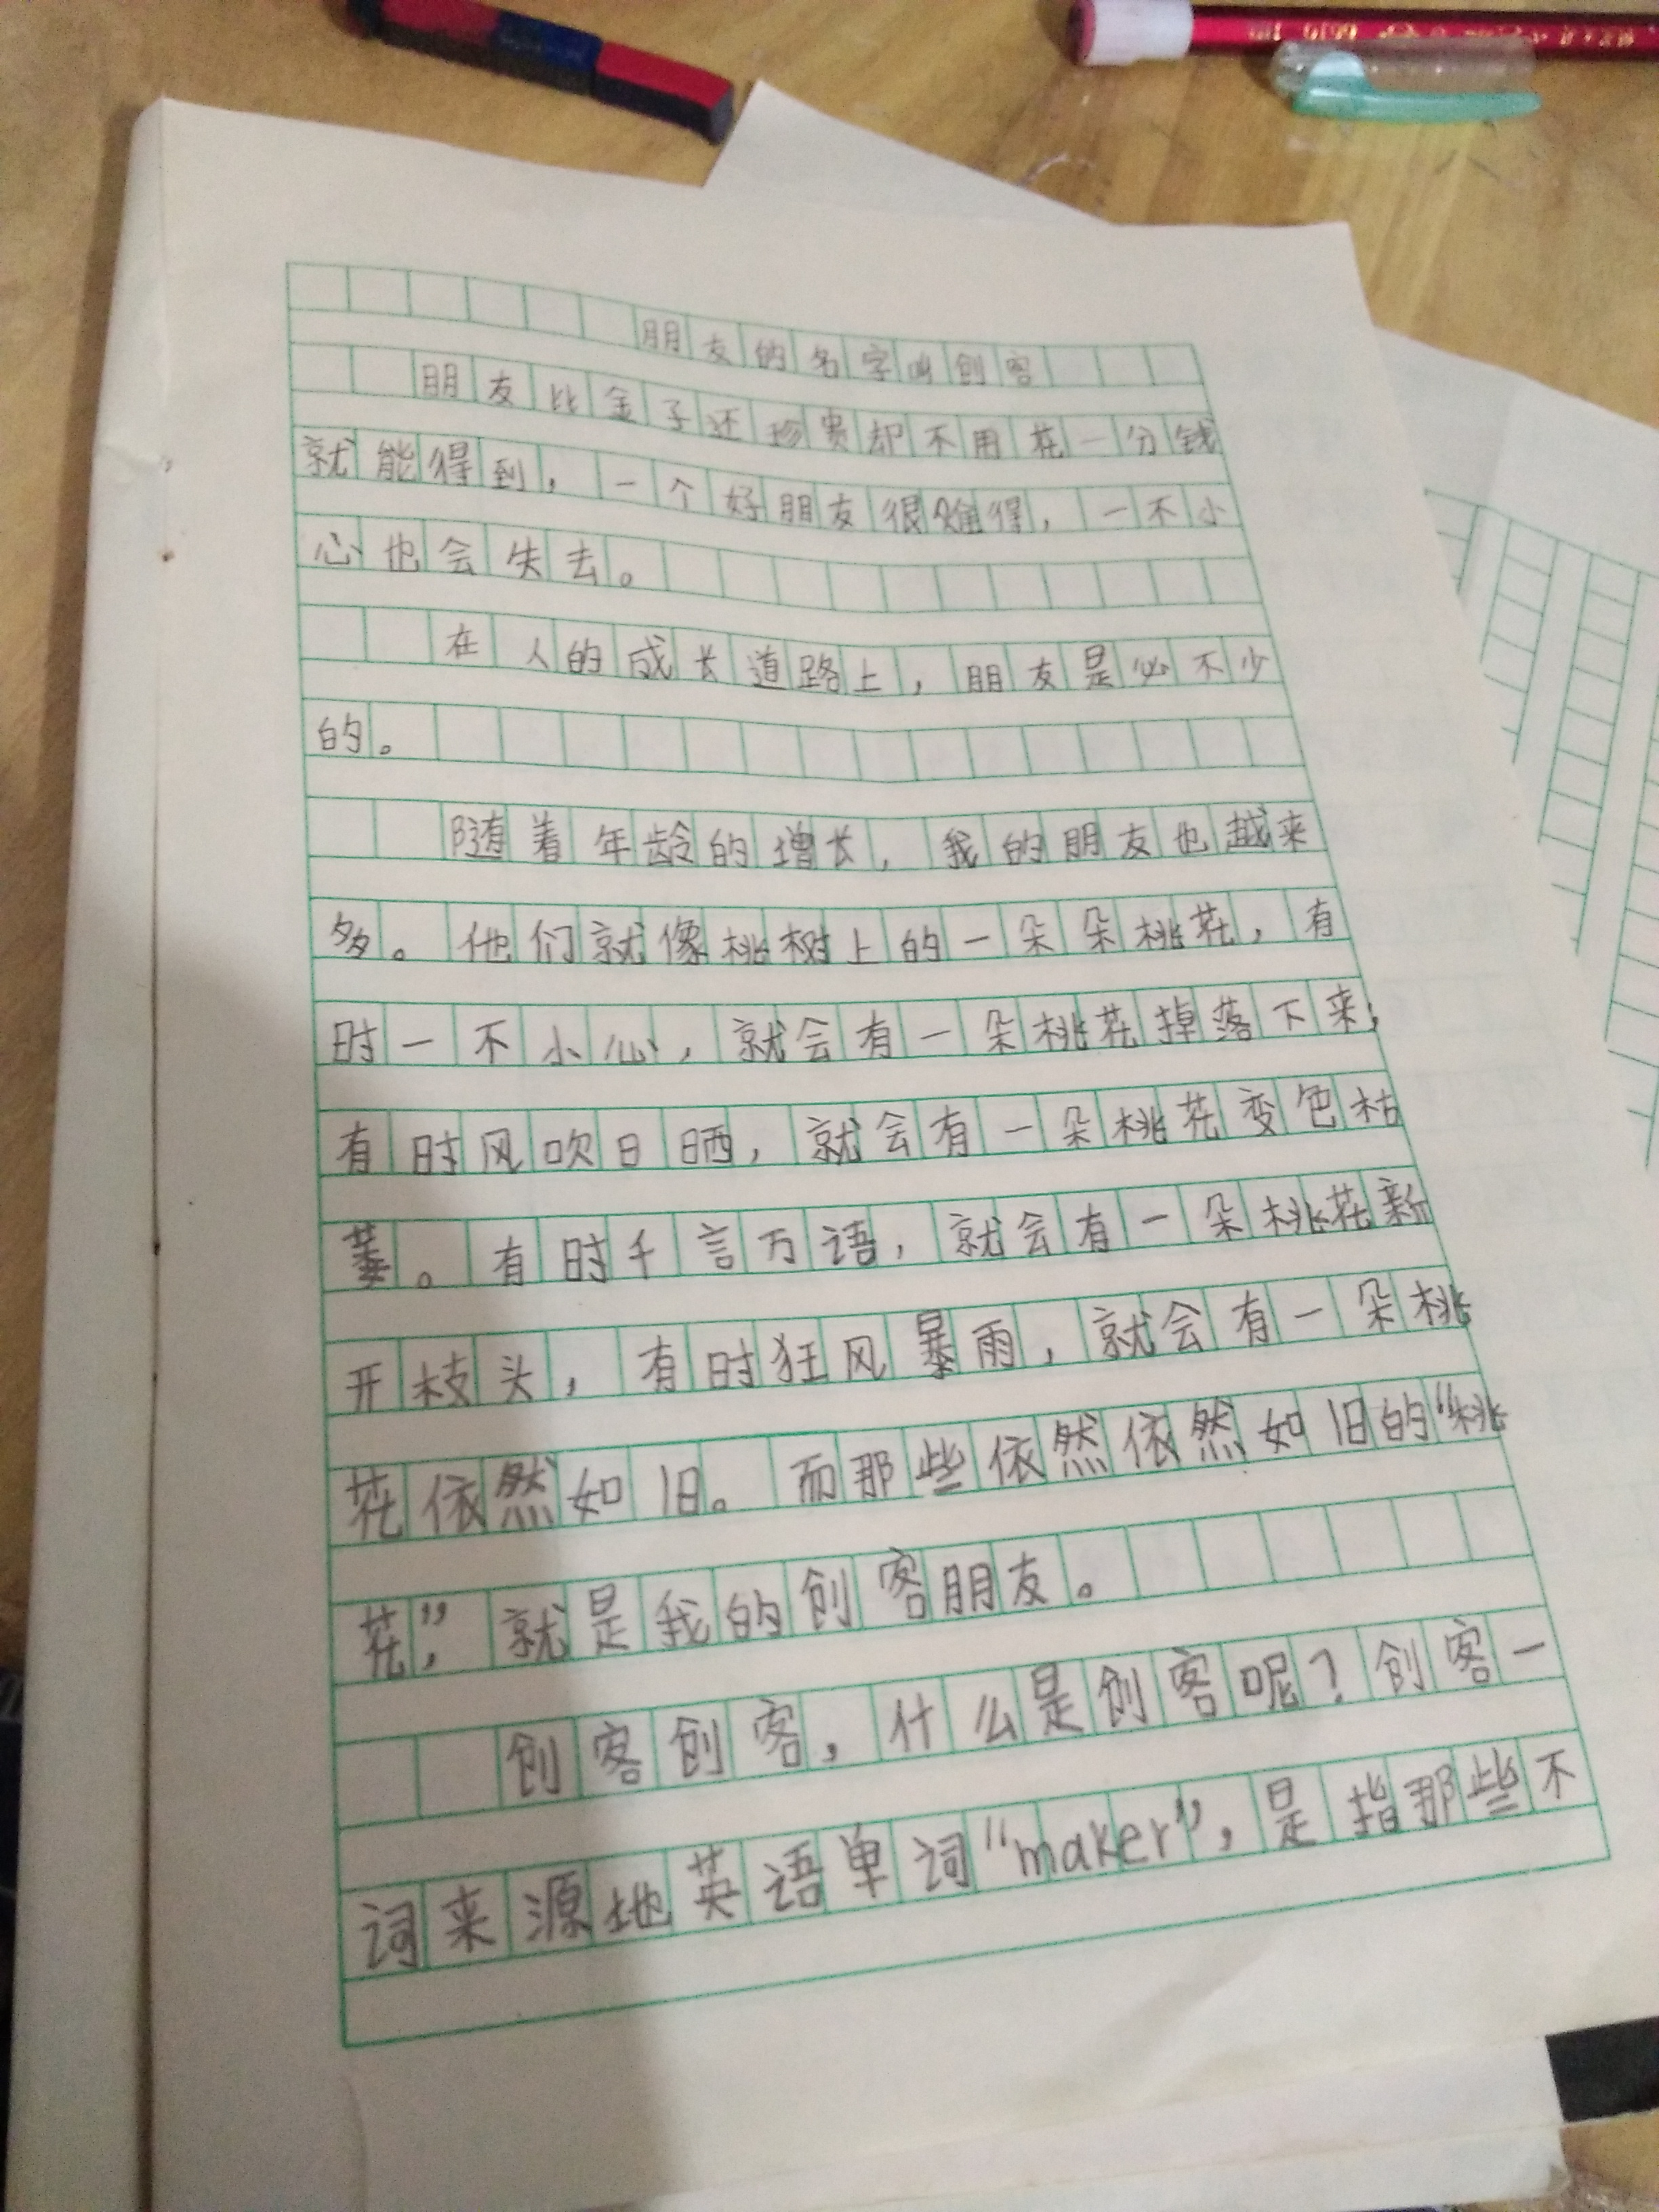 朋友的名字叫创客
朋友比金子还珍贵却不用花一分钱
就能得到，一个好朋友很难得，一不小
心也会失去。
在人的成长道路上，朋友是必不少
的。
随着年龄的增长，我的朋友也越来
多。他们就像桃树上的一朵朵桃花，有
时一不小心，就会有一朵桃花掉落下来；
有时风吹日晒，就会有一朵桃花变色枯
萎。有时千言万语，就会有一朵桃花新
开枝头，有时狂风暴雨，就会有一朵桃
花依然如旧。而那些依然依然如旧的“桃
花”，就是我的创客朋友。
创客创客，什么是创客呢？创客一
词来源地英语单词“maker”，是指那些不